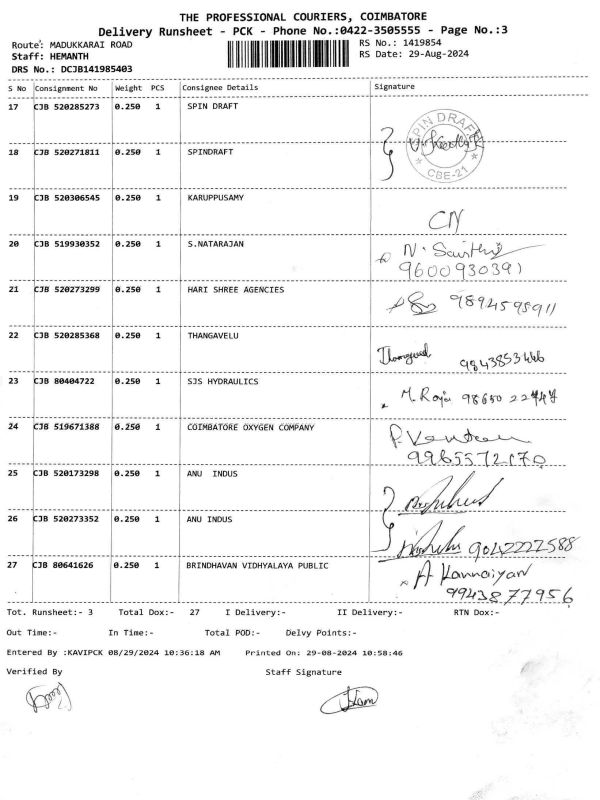 THE PROFESSIONAL COURIERS, COIMBATORE
Delivery Runsheet - PCK - Phone No.:0422-3505555 - Page No.:3
Route: MADUKKARAI ROAD RS No.: 1419854
Staff: HEMANTH RS Date: 29-Aug-2024
DRS No.: DCJB141985403
S No Consignment No Weight PCS Consignee Details Signature
17 CJB 520285273 0.250 1 SPIN DRAFT
SPIN DRAFT
CBE-21
18 CJB 520271811 0.250 1 SPINDRAFT
19 CJB 520306545 0.250 1 KARUPPUSAMY
CN
20 CJB 519930352 0.250 1 S.NATARAJAN
N. Santhi
9600930391
21 CJB 520273299 0.250 1 HARI SHREE AGENCIES
9894595911
22 CJB 520285368 0.250 1 THANGAVELU
9843853446
23 CJB 80404722 0.250 1 SJS HYDRAULICS
M. Raja 98650 22747
24 CJB 519671388 0.250 1 COIMBATORE OXYGEN COMPANY
9965572170
25 CJB 520173298 0.250 1 ANU INDUS
26 CJB 520273352 0.250 1 ANU INDUS
9042222588
27 CJB 80641626 0.250 1 BRINDHAVAN VIDHYALAYA PUBLIC
A Kannaiyan
9943877956
Tot. Runsheet:- 3 Total Dox:- 27 I Delivery:- II Delivery:- RTN Dox:-
Out Time:- In Time:- Total POD:- Delvy Points:-
Entered By :KAVIPCK 08/29/2024 10:36:18 AM Printed On: 29-08-2024 10:58:46
Verified By Staff Signature